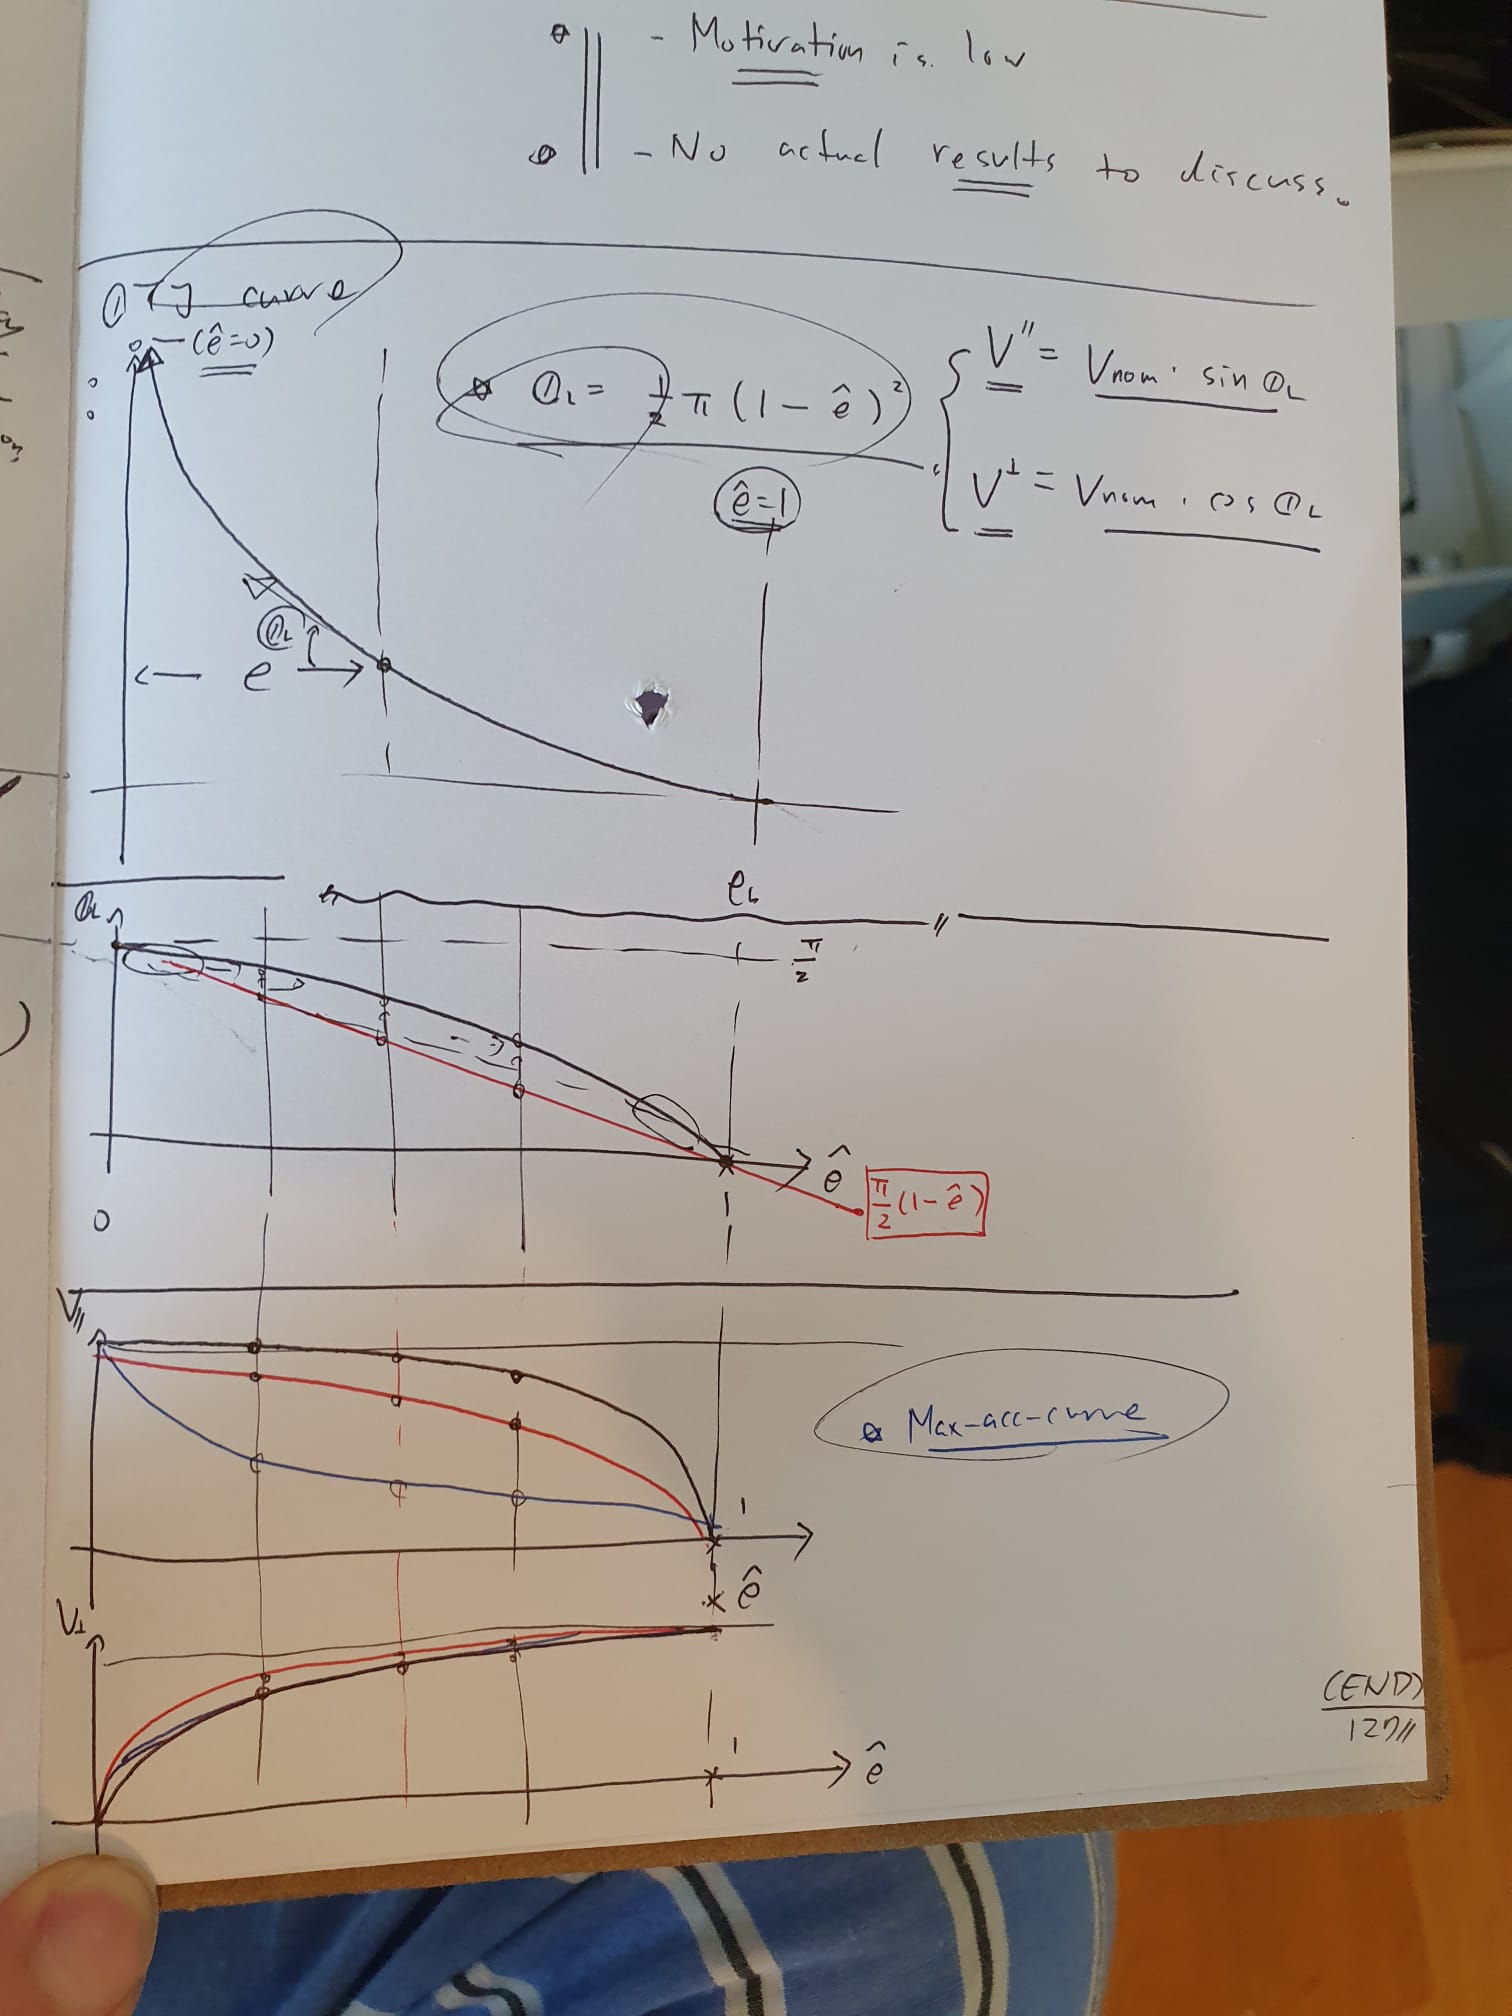 - Motivation is low
- No actual results to discuss.
curve
(ê=0)
ΘL = 1/2 π (1 - ê)²
V'' = Vnom · sin ΘL
V⊥ = Vnom · cos ΘL
ê=1
ΘL
e
eL
ΘL
π/2
ê
π/2 (1-ê)
0
1
V||
Max-acc-curve
1
ê
V⊥
1
ê
(END)